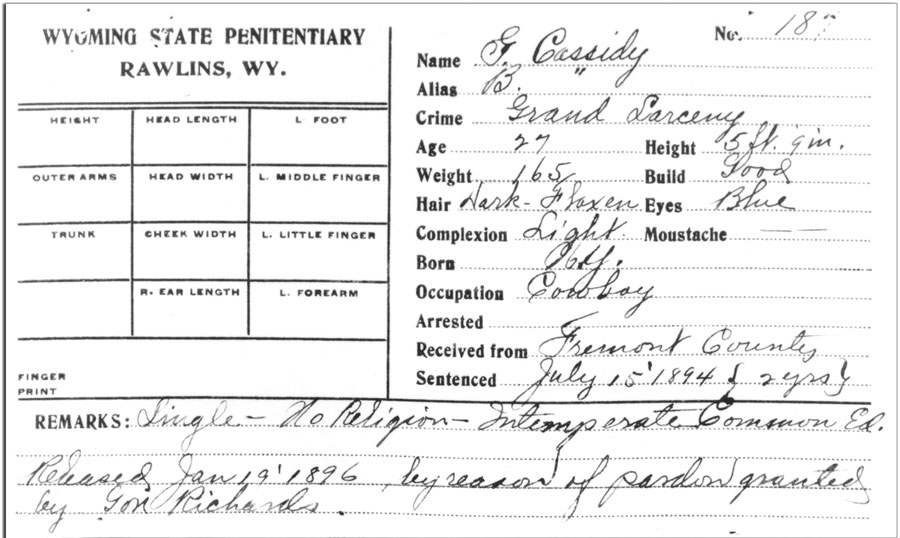 WYOMING STATE PENITENTIARY
RAWLINS, WY.
HEIGHT HEAD LENGTH L. FOOT
OUTER ARMS HEAD WIDTH L. MIDDLE FINGER
TRUNK CHEEK WIDTH L. LITTLE FINGER
R. EAR LENGTH L. FOREARM
FINGER
PRINT
No. 187
Name G. Cassidy
Alias B. "
Crime Grand Larceny
Age 27 Height 5 ft. 9 in.
Weight 165 Build Good
Hair Dark-Flaxen Eyes Blue
Complexion Light Moustache —
Born N.Y.
Occupation Cowboy
Arrested
Received from Fremont County
Sentenced July 15' 1894 { 2 yrs }
REMARKS: Single - No Religion - Intemperate Common Ed.
Released Jan 19' 1896 by reason of pardon granted
by Gov Richards.